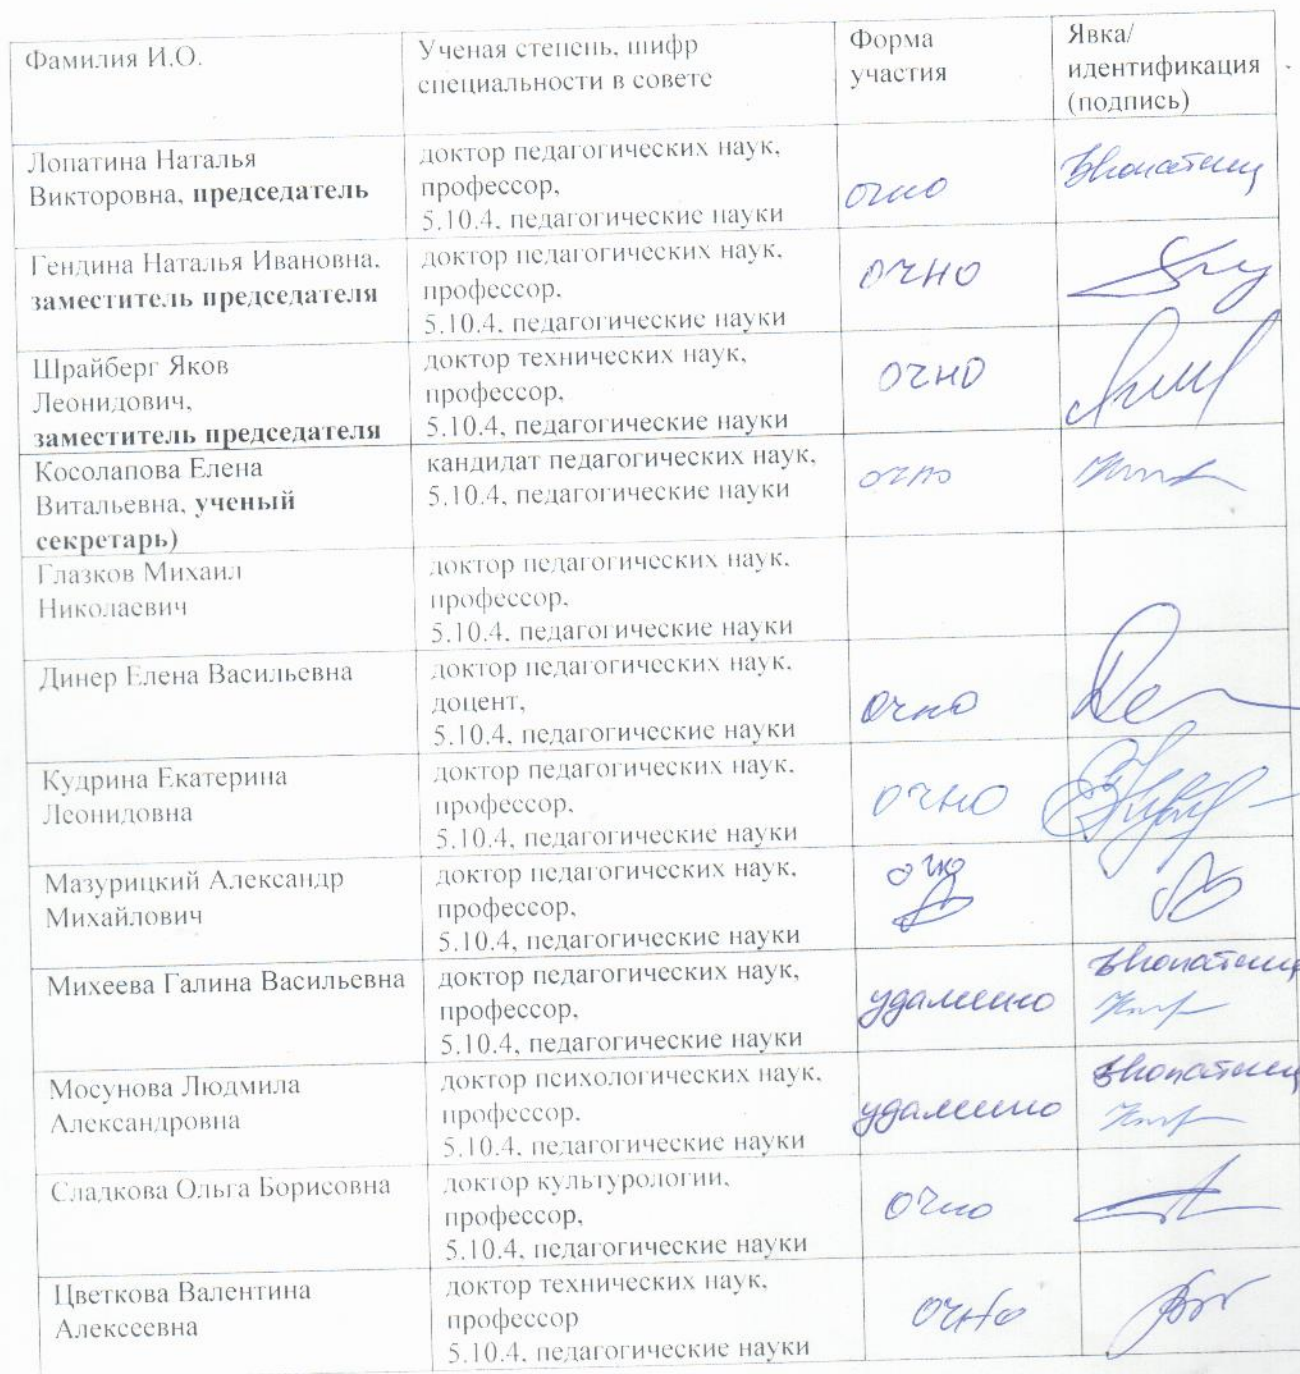 Фамилия И.О.
Ученая степень, шифр
специальности в совете
Форма
участия
Явка/
идентификация
(подпись)
Лопатина Наталья
Викторовна, председатель
доктор педагогических наук,
профессор,
5.10.4. педагогические науки
очно
Гендина Наталья Ивановна,
заместитель председателя
доктор педагогических наук,
профессор,
5.10.4. педагогические науки
очно
Шрайберг Яков
Леонидович,
заместитель председателя
доктор технических наук,
профессор,
5.10.4, педагогические науки
очно
Косолапова Елена
Витальевна, ученый
секретарь)
кандидат педагогических наук,
5.10.4, педагогические науки
очно
Глазков Михаил
Николаевич
доктор педагогических наук,
профессор,
5.10.4. педагогические науки
Динер Елена Васильевна
доктор педагогических наук,
доцент,
5.10.4. педагогические науки
очно
Кудрина Екатерина
Леонидовна
доктор педагогических наук,
профессор,
5.10.4, педагогические науки
очно
Мазурицкий Александр
Михайлович
доктор педагогических наук,
профессор,
5.10.4, педагогические науки
очно
Михеева Галина Васильевна
доктор педагогических наук,
профессор,
5.10.4, педагогические науки
удаленно
Мосунова Людмила
Александровна
доктор психологических наук,
профессор,
5.10.4. педагогические науки
удаленно
Сладкова Ольга Борисовна
доктор культурологии,
профессор,
5.10.4. педагогические науки
очно
Цветкова Валентина
Алексеевна
доктор технических наук,
профессор
5.10.4. педагогические науки
очно